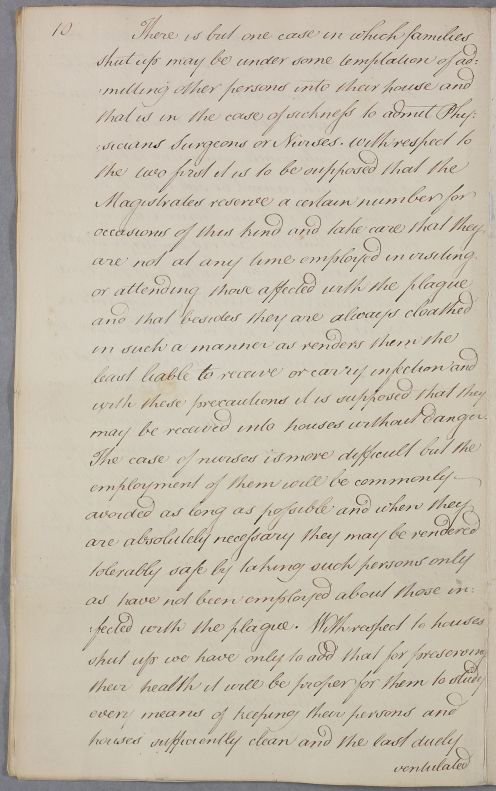 10
There is but one case in which families
shut up may be under some temptation of ad:
:mitting other persons into their house and
that is in the case of sickness to admit Phy:
:sicians Surgeons or Nurses. with respect to
the two first it is to be supposed that the
Magistrates reserve a certain number for
occasions of this kind and take care that they
are not at any time employed in visiting
or attending those affected with the plague
and that besides they are always cloathed
in such a manner as renders them the
least liable to receive or carry infection and
with these precautions it is supposed that they
may be received into houses without danger.
The case of nurses is more difficult but the
employment of them will be commonly
avoided as long as possible and when they
are absolutely necessary they may be rendered
tolerably safe by taking such persons only
as have not been employed about those in:
:fected with the plague. With respect to houses
shut up we have only to add that for preserving
their health it will be proper for them to study
every means of keeping their persons and
houses sufficiently clean and the last duely
ventulated